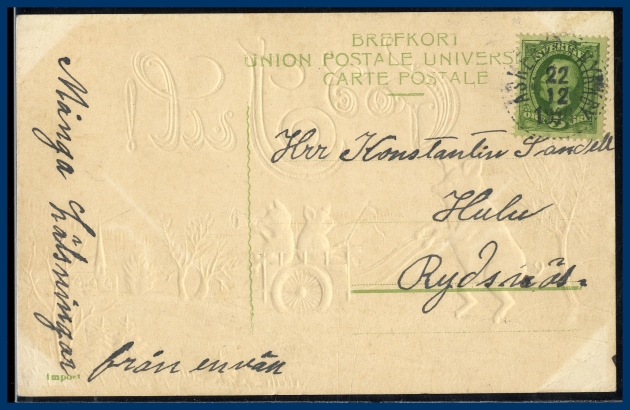 BREFKORT
UNION POSTALE UNIVERS
CARTE POSTALE
22
12
Hrr Konstantin Sandell
Hulu
Rydsnäs.
Många hälsningar
från en vän
Import